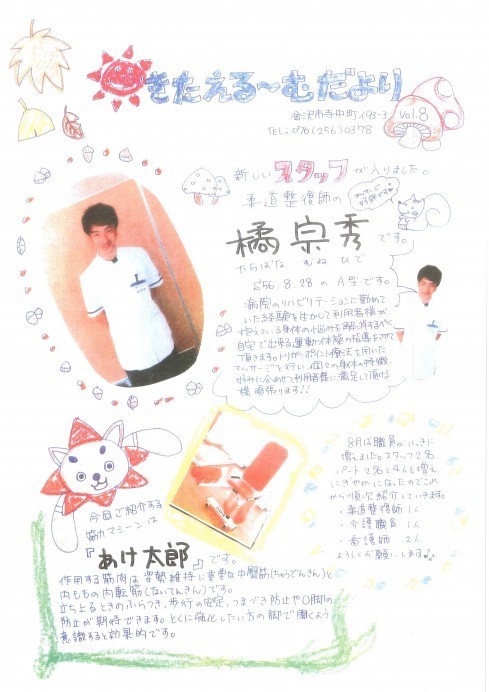 きたえる～むだより
金沢市寺中町イ93-3
TEL:076(256)0378
vol.8
新しいスタッフが入りました。
柔道整復師の
橘 宗秀です。
たちばな むね ひで
S56.8.28の A型です。
病院のリハビリテーションに勤めて
いた経験を生かして利用者様が
抱えている身体の悩みを解消するべく
自宅で出来る運動・体操の指導をさせて
頂きます。トリガーポイント療法を用いた
マッサージを行い、個々の身体の特徴、
好みに合わせて利用者様に満足して頂ける
様 頑張ります!!
8月は職員がいっきに
増えました。スタッフ2名
パート2名と4人も増え
にぎやかになったのでこれ
から順次紹介していきます。
・柔道整復師 1人
・介護職員 1人
・看護師 2人
よろしくお願いします♪
今回ご紹介する
筋力マシーンは
『あけ太郎』です。
作用する筋肉は 姿勢維持に重要な中臀筋(ちゅうでんきん)と
内ももの内転筋(ないてんきん)です。
立ち上るときのふらつき、歩行の安定、つまづき防止やO脚の
防止が期待できます。とくに強化したい方の脚で開くよう
意識すると効果的です。